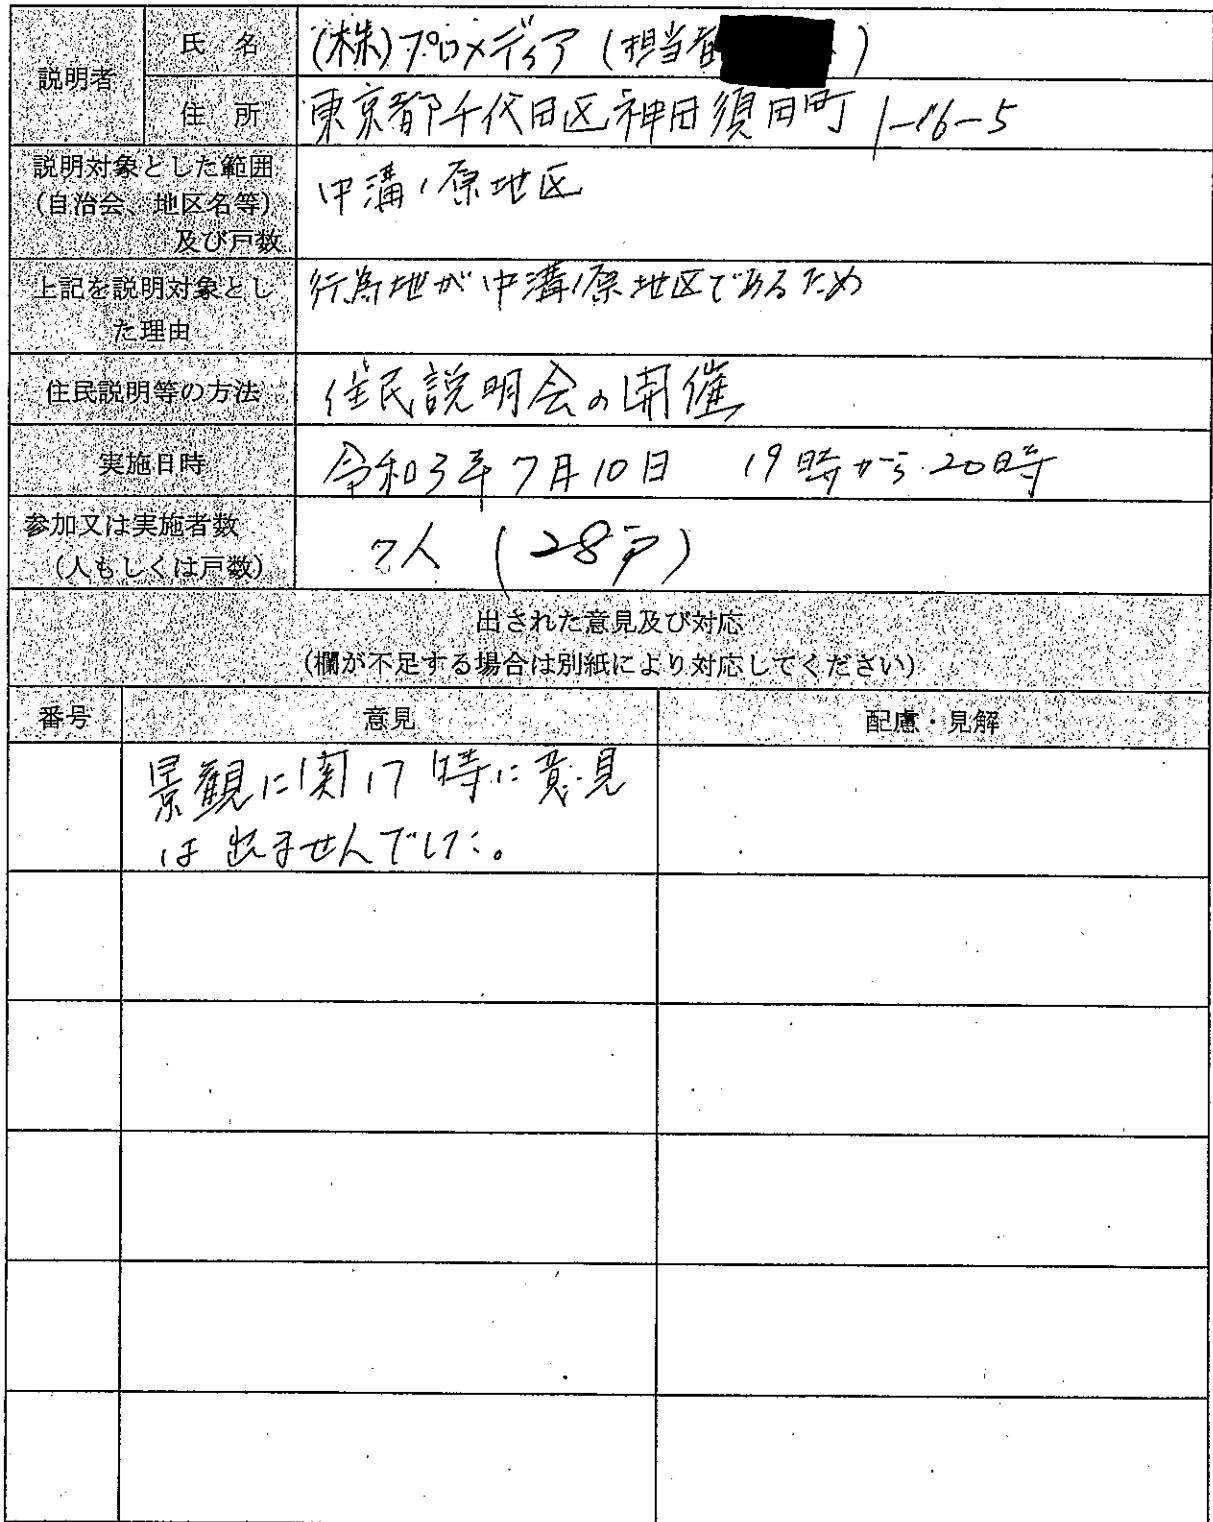 説明者
氏 名
(株)プロメディア (担当者 )
住 所
東京都千代田区神田須田町 1-16-5
説明対象とした範囲
(自治会、地区名等)
及び戸数
中溝ノ原地区
上記を説明対象とし
た理由
行為地が中溝ノ原地区であるため
住民説明等の方法
住民説明会の開催
実施日時
令和3年7月10日 19時から20時
参加又は実施者数
(人もしくは戸数)
7人 (28戸)
出された意見及び対応
(欄が不足する場合は別紙により対応してください)
番号 意見 配慮・見解
景観に関して特に意見
は出ませんでした。